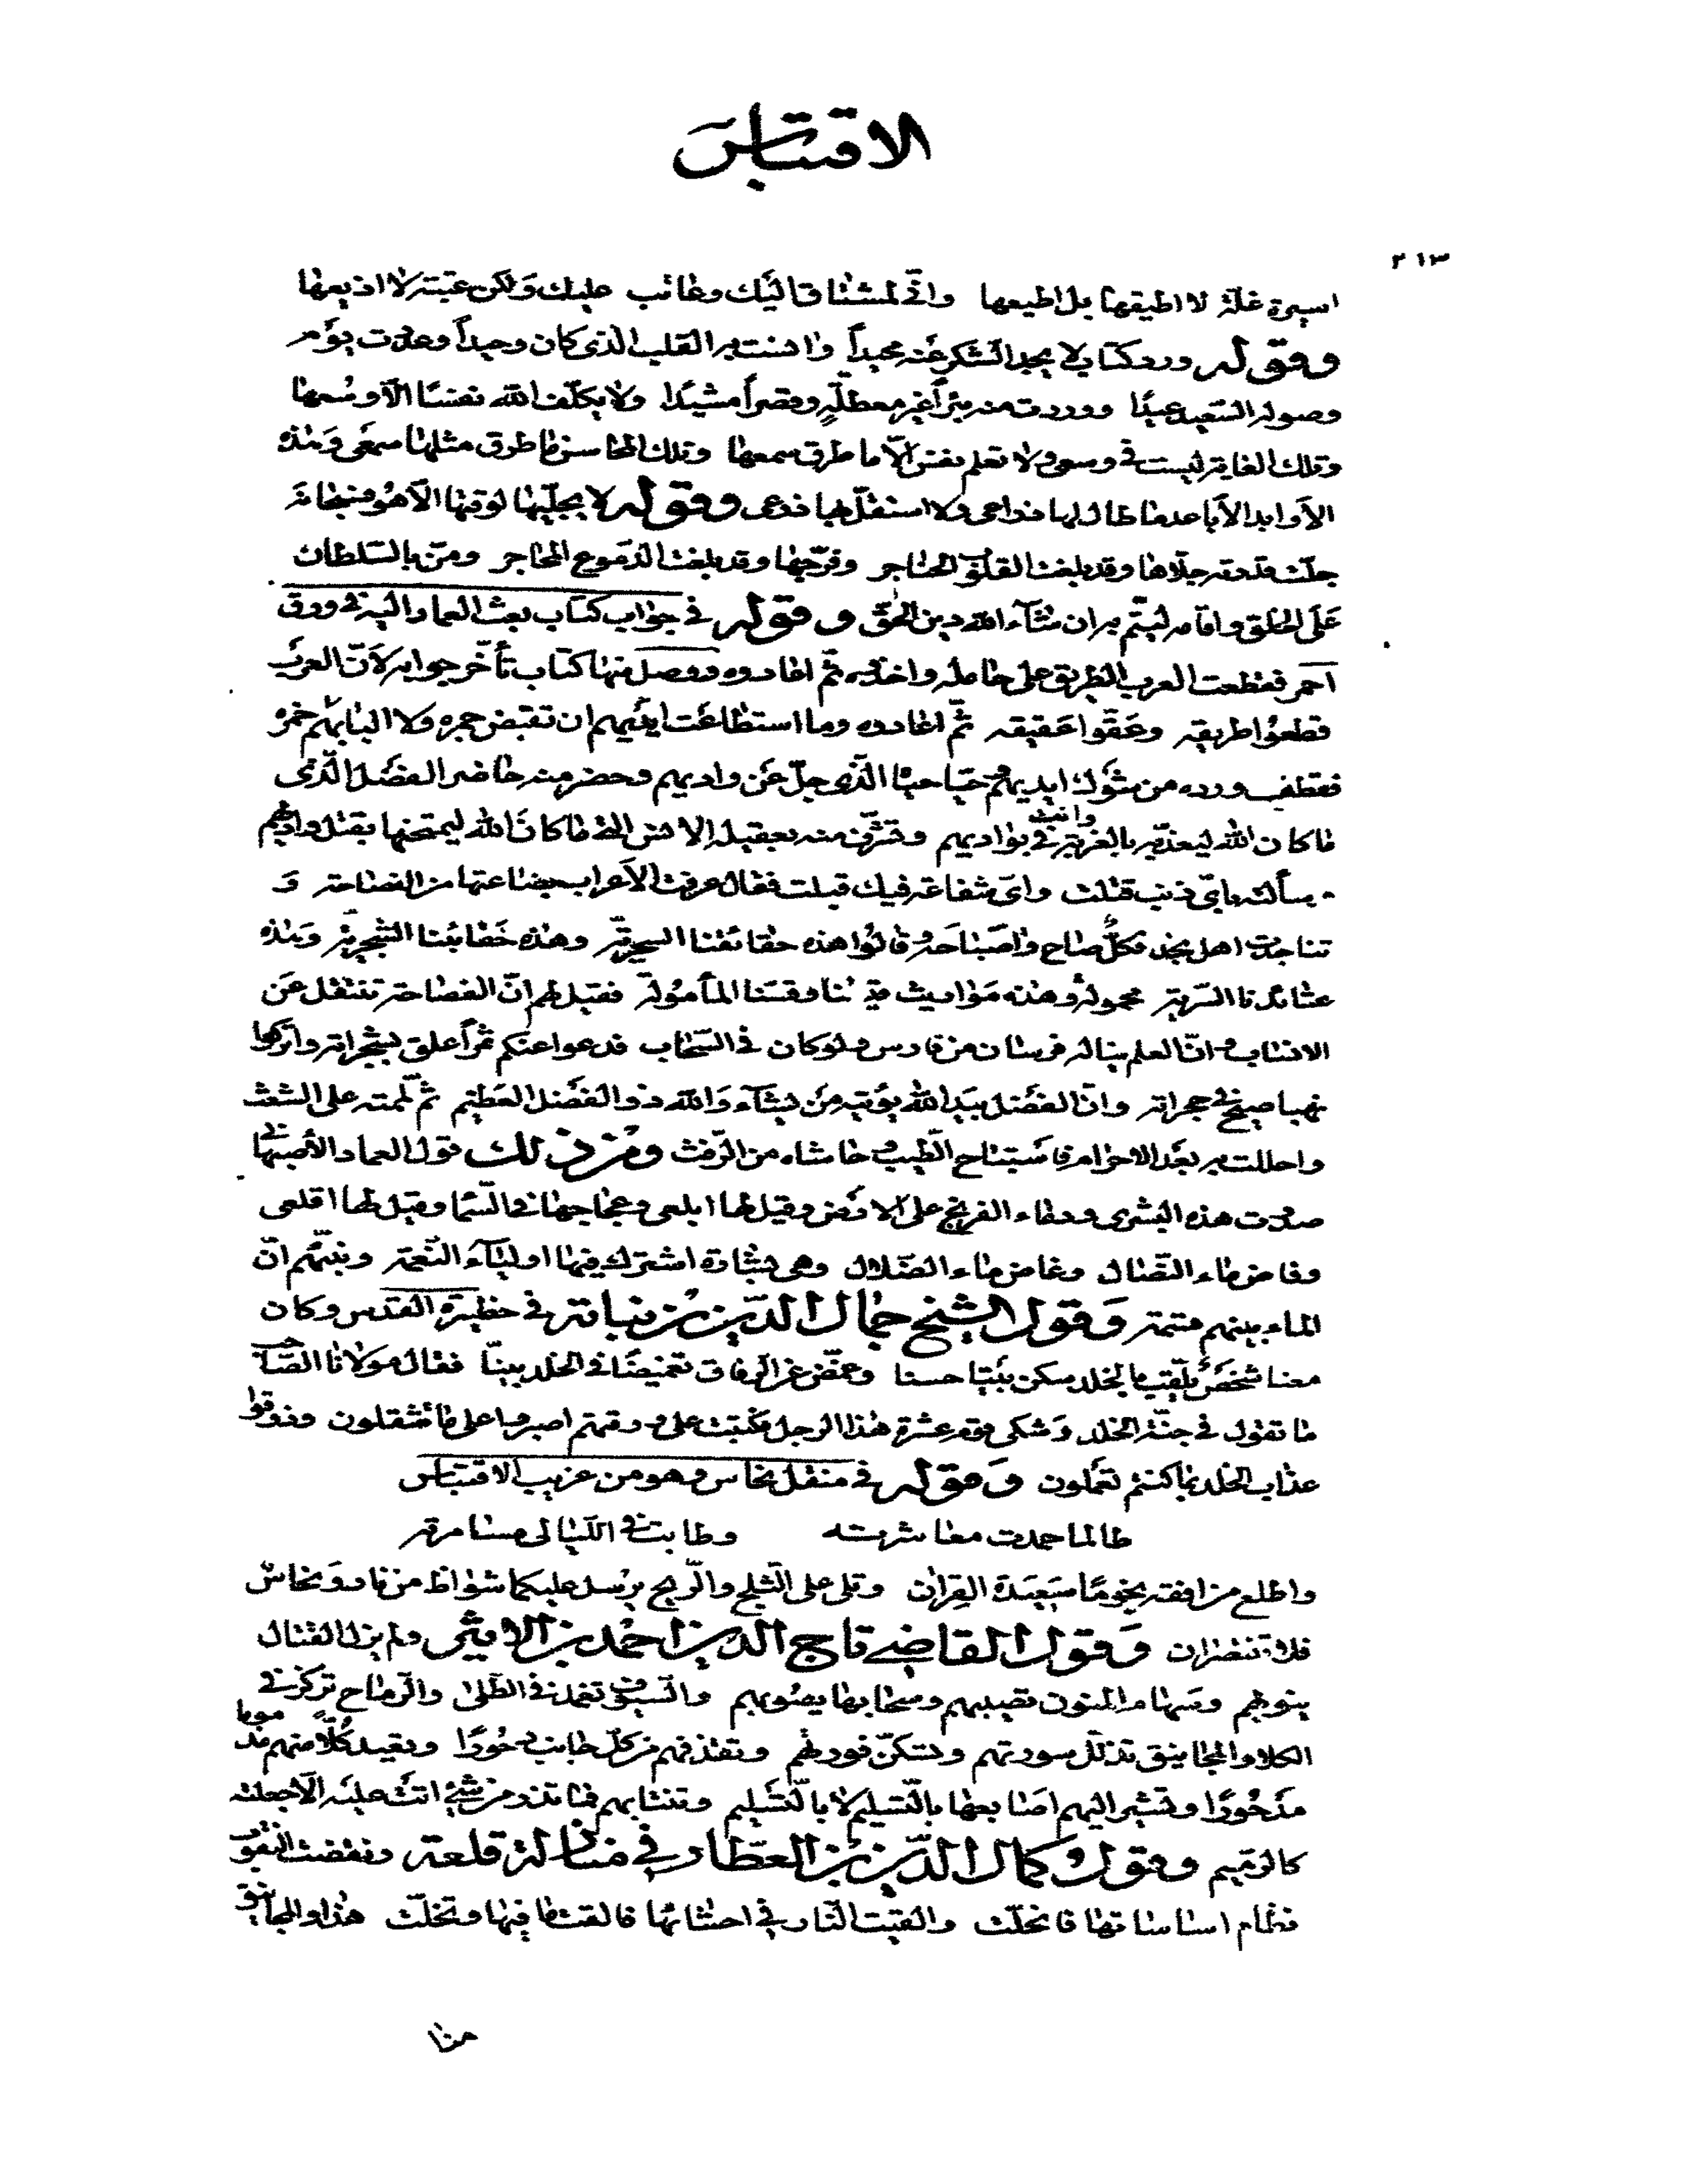 الاقتباس
٢١٣
اسيرة غلّة لا اطيقها بل اطيعها وانّى لمشتاق اليك وعاتب عليك ولكن عتبة لا اذيعها
وقوله ورد كتاب لا يجد الشكر عنه محيداً وانست به القلب الذى كان وحيداً وعددت يوم
وصوله السعيد عيدًا ووردت منه بئراً غير معطلّة وقصراً مشيدًا ولا يكلّف الله نفسًا الّا وسعها
وتلك الغاية ليست فى وسعى ولا تعلم نفس الّا ما طرق سمعها وتلك المحاسن ما طرق مثلها سمعى وهذه
الأوابد الأباعد ما طال لها ذراعى ولا استقلّ بها ذرعى وقوله لا يجلّيها لوقتها الّا هو فسبحانه
جلّت قدرته جلّاها وقد بلغت القلوب الحناجر وفرّجها وقد بلغت الدموع المحاجر ومنّ بالسّلطان
على الخلق واقامه ليتم به ان شآء الله دين الحق وقوله فى جواب كتاب بعث العماد اليه فى ورق
احمر فقطعت العرب الطريق على حامله واخذوه ثمّ اعادوه ووصل منها كتاب تأخّر جوابه لأنّ العرب
قطعوا طريقه وعقّوا عقيقه ثمّ اعادوه وما استطاعت ايديهم ان تقبض جمره ولا البابهم خمره
فقطف ورده من شوك ايديهم وحيّا حيا الذى جلّ عن واديهم وحضر منه حاضر الفضل الّذى
ما كان الله ليعذّبه بالغربة وانت فى بواديهم وتشرّف منه بعقيلة الانس التى ما كان الله ليمتحنها بقتل واديهم
يسألنه باىّ ذنب قتلت واىّ شفاعة فيك قبلت فقال عرفت الأعراب بضاعتها من الفصاحة و
تناجدت اهل نجد فكلّ صاح واصباحه وقالوا هذه حقائقنا السحرية وهذه حقائبنا الشجرية وهذه
عتائدنا السرية محمولة وهذه مواريث قسّنا المأموله فقيل لهم انّ الفصاحة تنتقل عن
الانساب وانّ العلم يناله فرسان من فارس ولو كان فى السّحاب فدعوا عنكم ثمراً علق بشجراته واتركوا
نهبا صيح فى حجراته وانّ الفضل بيد الله يؤتيه من يشآء والله ذو الفضل العظيم ثمّ لمته على الشعث
واحللت به بعد الاحرام فاستباح الطيب وحاشاه من الرّفث ومن ذلك قول العماد الأصبهانى
صدرت هذه البشرى ودماء الفرنج على الارض وقيل لها ابلعى وعجاجها فى السّما وقيل لها اقلعى
وفاض ماء النّصال وغاض ماء الضّلال وهى بشارة اشترك فيها اوليآء النّعمة ونبّئهم انّ
الماء بينهم قسمة وقول الشيخ جمال الدين بن نباته فى حظيرة القدس وكان
معنا شخص يلقّب بالخلد سكن بيتا حسنا وغمّض عن الرفاق تغميضًا فى الخلد بيّنا فقال مولانا الصّاحب
ما تقول فى جنّة الخلد وشكى قوم عشرة هذا الرجل فكتبت على ورقتهم اصبروا على ما تستقلون وذوقوا
عذاب الخلد بما كنتم تعملون وقوله فى منقل نحاس وهو من غريب الاقتباس
طالما حمدت معاشرته وطابت فى الليالى مسامرته
واطلع من افقه نجومًا سعيدة القران وتلى على الثلج والريح يرسل عليكما شواظ من نار ونحاس
فلا تنتصران وقول القاضى تاج الدين احمد بن الاثير ولم يزل القتال
ينوبهم وسهام المنون تصيبهم وسحابها يصوبهم والسيوف تغمد فى الطلى والرماح تركز فى
الكلا والمجانيق تذلّل سورتهم وتسكّن فورتهم وتقذفهم من كلّ جانب دحورًا وتعيد كلّا منهم مذموما
مدحورًا وتشير اليهم اصابعها بالتسليم لا بالتّسليم وتنتابهم فما تذر من شئ اتت عليه الّا جعلته
كالرميم وقول كمال الدين بن العطار فى منازلة قلعة ونقضت النقوب
نظام اساساتها فانحلّت والقيت النّار فى احشائها فالقت ما فيها وتخلّت هذا والمجانيق
هذا